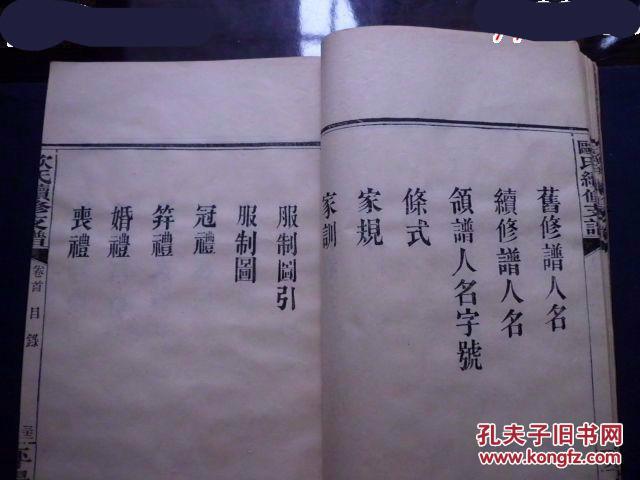 歐氏續修支譜
舊修譜人名
續修譜人名
領譜人名字號
條式
家規
家訓
服制圖引
服制圖
冠禮
笄禮
婚禮
喪禮
氏續修支譜
卷首
目錄
孔夫子旧书网
www.kongfz.com